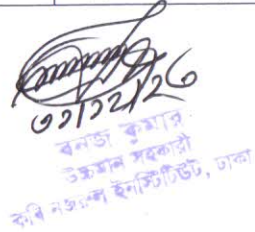 ৩১/১২/২৩
বনজ কুমার
উচ্চমান সহকারী
কবি নজরুল ইনস্টিটিউট, ঢাকা